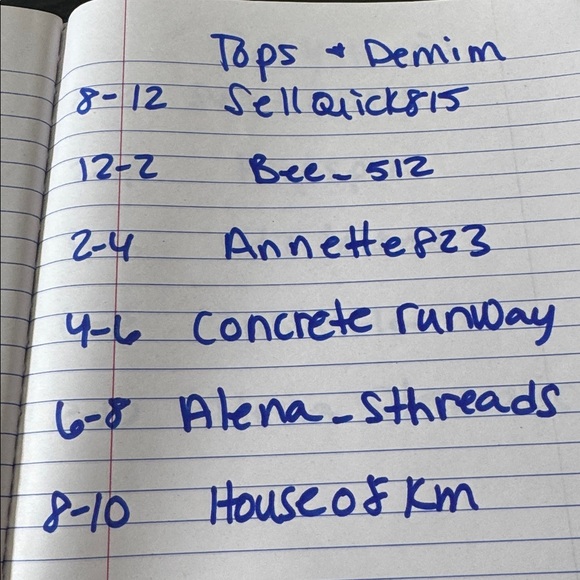 Tops + Demim
8-12 SellQuick815
12-2 Bee_512
2-4 Annette823
4-6 Concrete runway
6-8 Alena_sthreads
8-10 House of Km